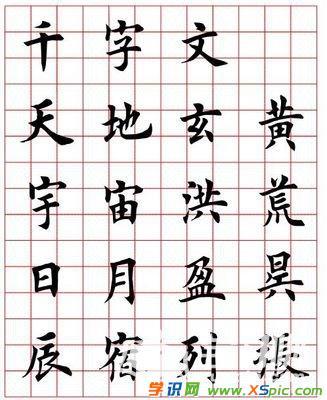 千字文
天地玄黄
宇宙洪荒
日月盈昃
辰宿列張
学识网
www.XSpic.com